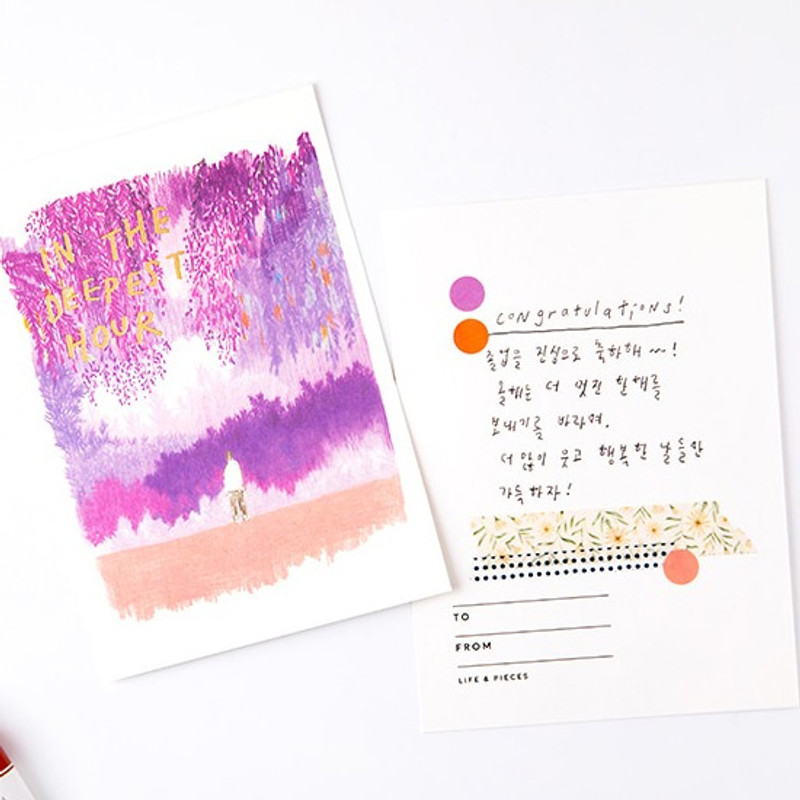 IN THE
DEEPEST
HOUR
congratulations!
졸업을 진심으로 축하해~!
올해는 더 멋진 한해를
보내기를 바라며,
더 많이 웃고 행복한 날들만
가득하자!
TO
FROM
LIFE & PIECES